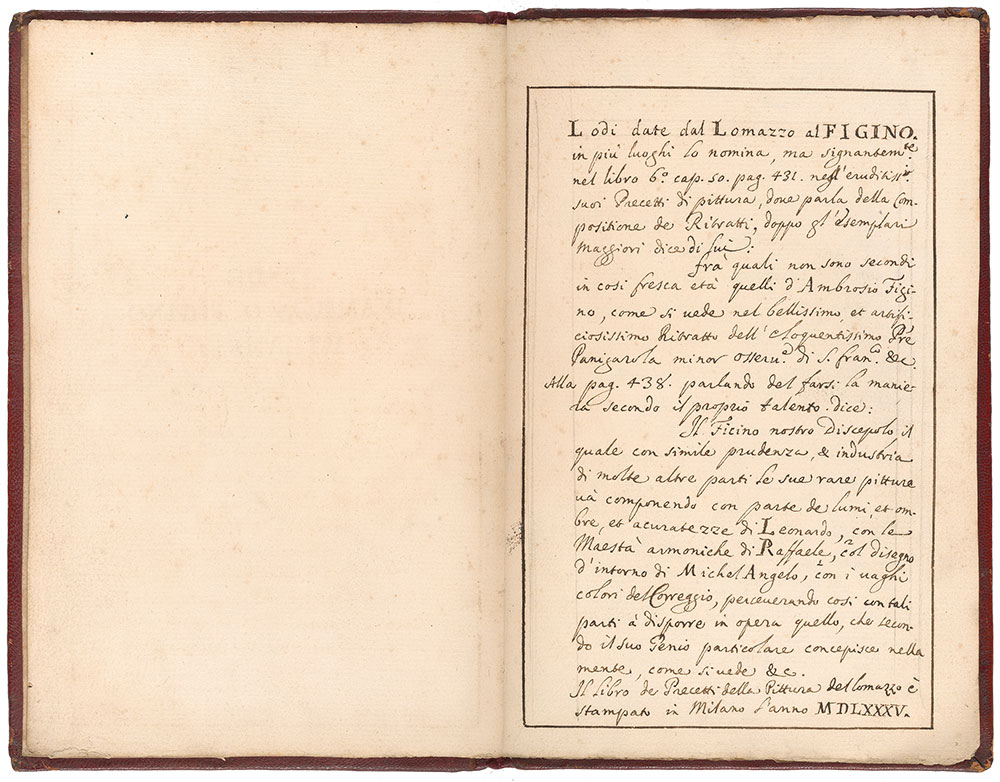 Lodi date dal Lomazzo al FIGINO.
in più luoghi lo nomina, ma signantemte.
nel libro 6º cap. 50. pag. 431. nell'eruditissmi.
suoi Precetti di pittura, dove parla della Com-
positione de Ritratti, doppo gl'esemplari
maggiori dice di lui:
frà quali non sono secondi
in cosi fresca età quelli d'Ambrosio Figi-
no, come si vede nel bellissimo et artifi-
ciosissimo Ritratto dell'eloquentissimo Pre
Panigarola minor osseru.e di S. fran.co &c.
Alla pag. 438. parlando del farsi la manie-
ra secondo il proprio talento. dice:
Il Ficino nostro Discepolo, il
quale con simile prudenza, & industria
di molte altre parti le sue rare pitture
uà componendo con parte de lumi, et om-
bre, et acuratezze di Leonardo, con le
Maestà armoniche di Raffaele, col disegno
d'intorno di Michel Angelo, con i uaghi
colori del Correggio, perceverando cosi con tali
parti à disporre in opera quello, che secon-
do il suo Genio particolare concepisce nella
mente, come si vede &c.
Il libro de Precetti della Pittura del lomazzo è
stampato in Milano l'anno MDLXXXV.